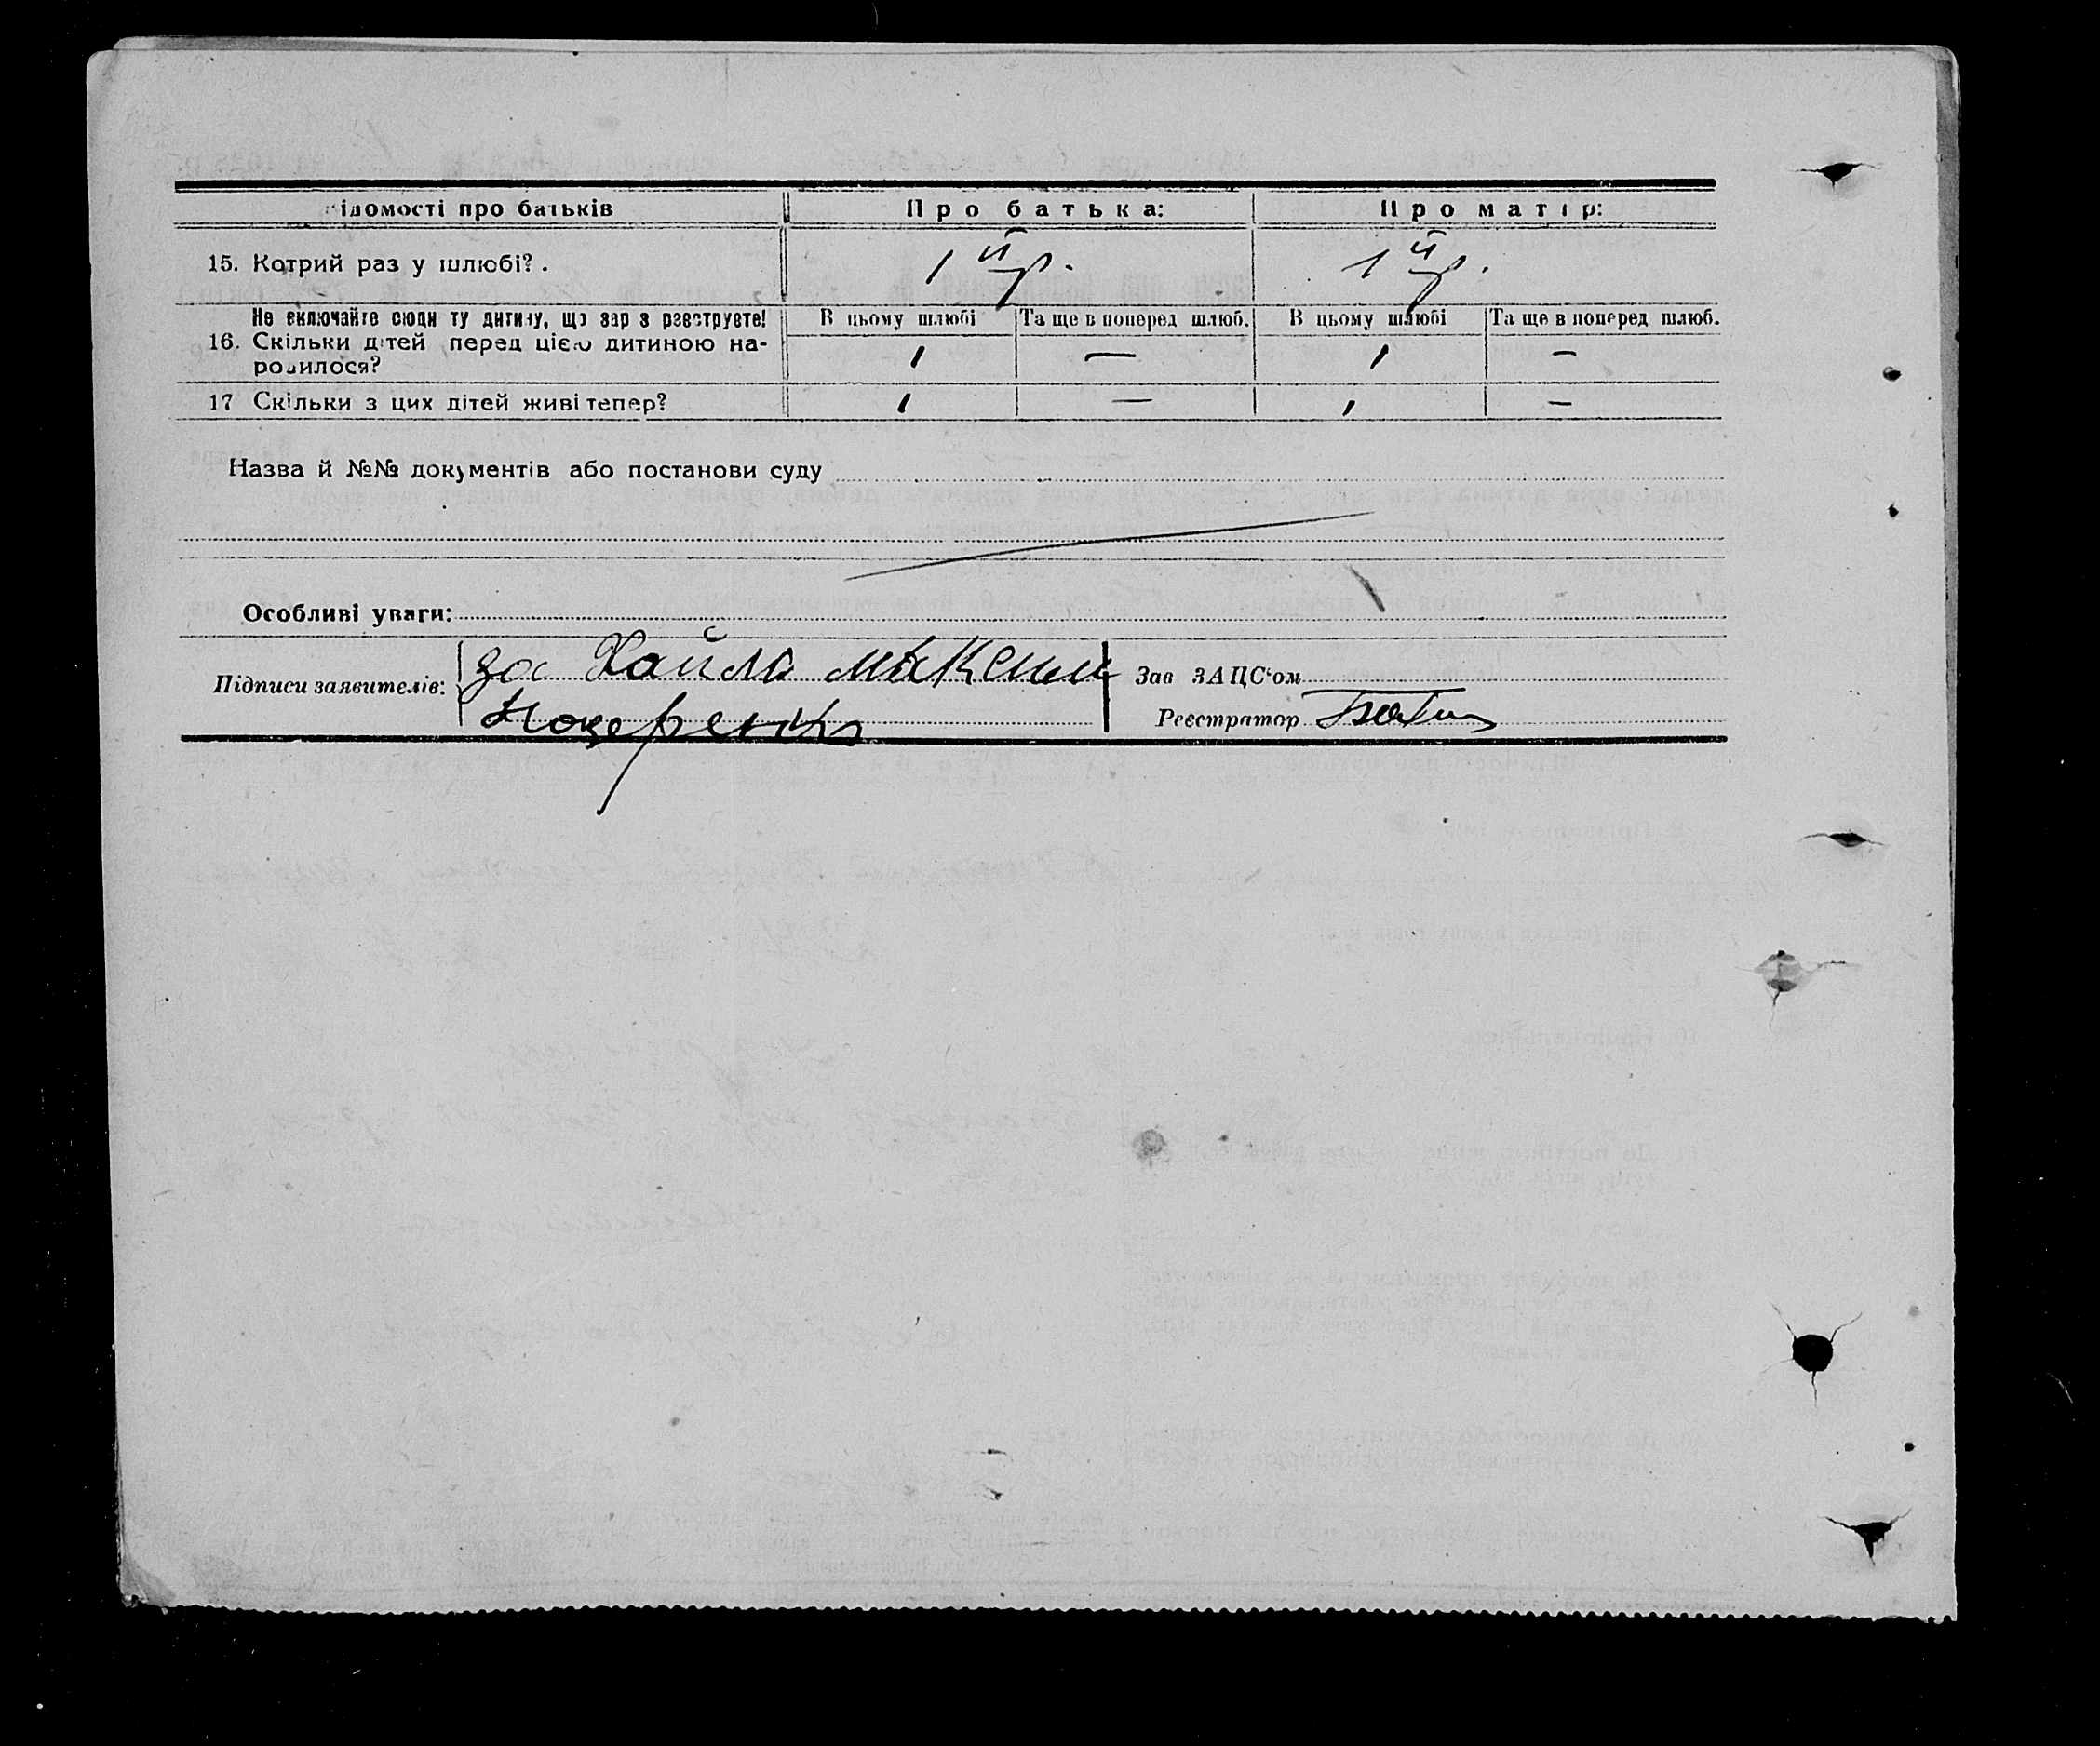 ідомості про батьків Про батька: Про матір:
15. Котрий раз у шлюбі? . 1 й р. 1 й р.
Не включайте сюди ту дитину, що зараз реєструєте! В цьому шлюбі Та ще в поперед шлюб. В цьому шлюбі Та ще в поперед шлюб.
16. Скільки дітей перед цією дитиною на-
родилося? 1 — 1 —
17 Скільки з цих дітей живі тепер? 1 — 1 —
Назва й №№ документів або постанови суду
Особливі уваги:
Підписи заявителів: за Хайла Зав ЗАЦС'ом
Ноцеренко Реєстратор